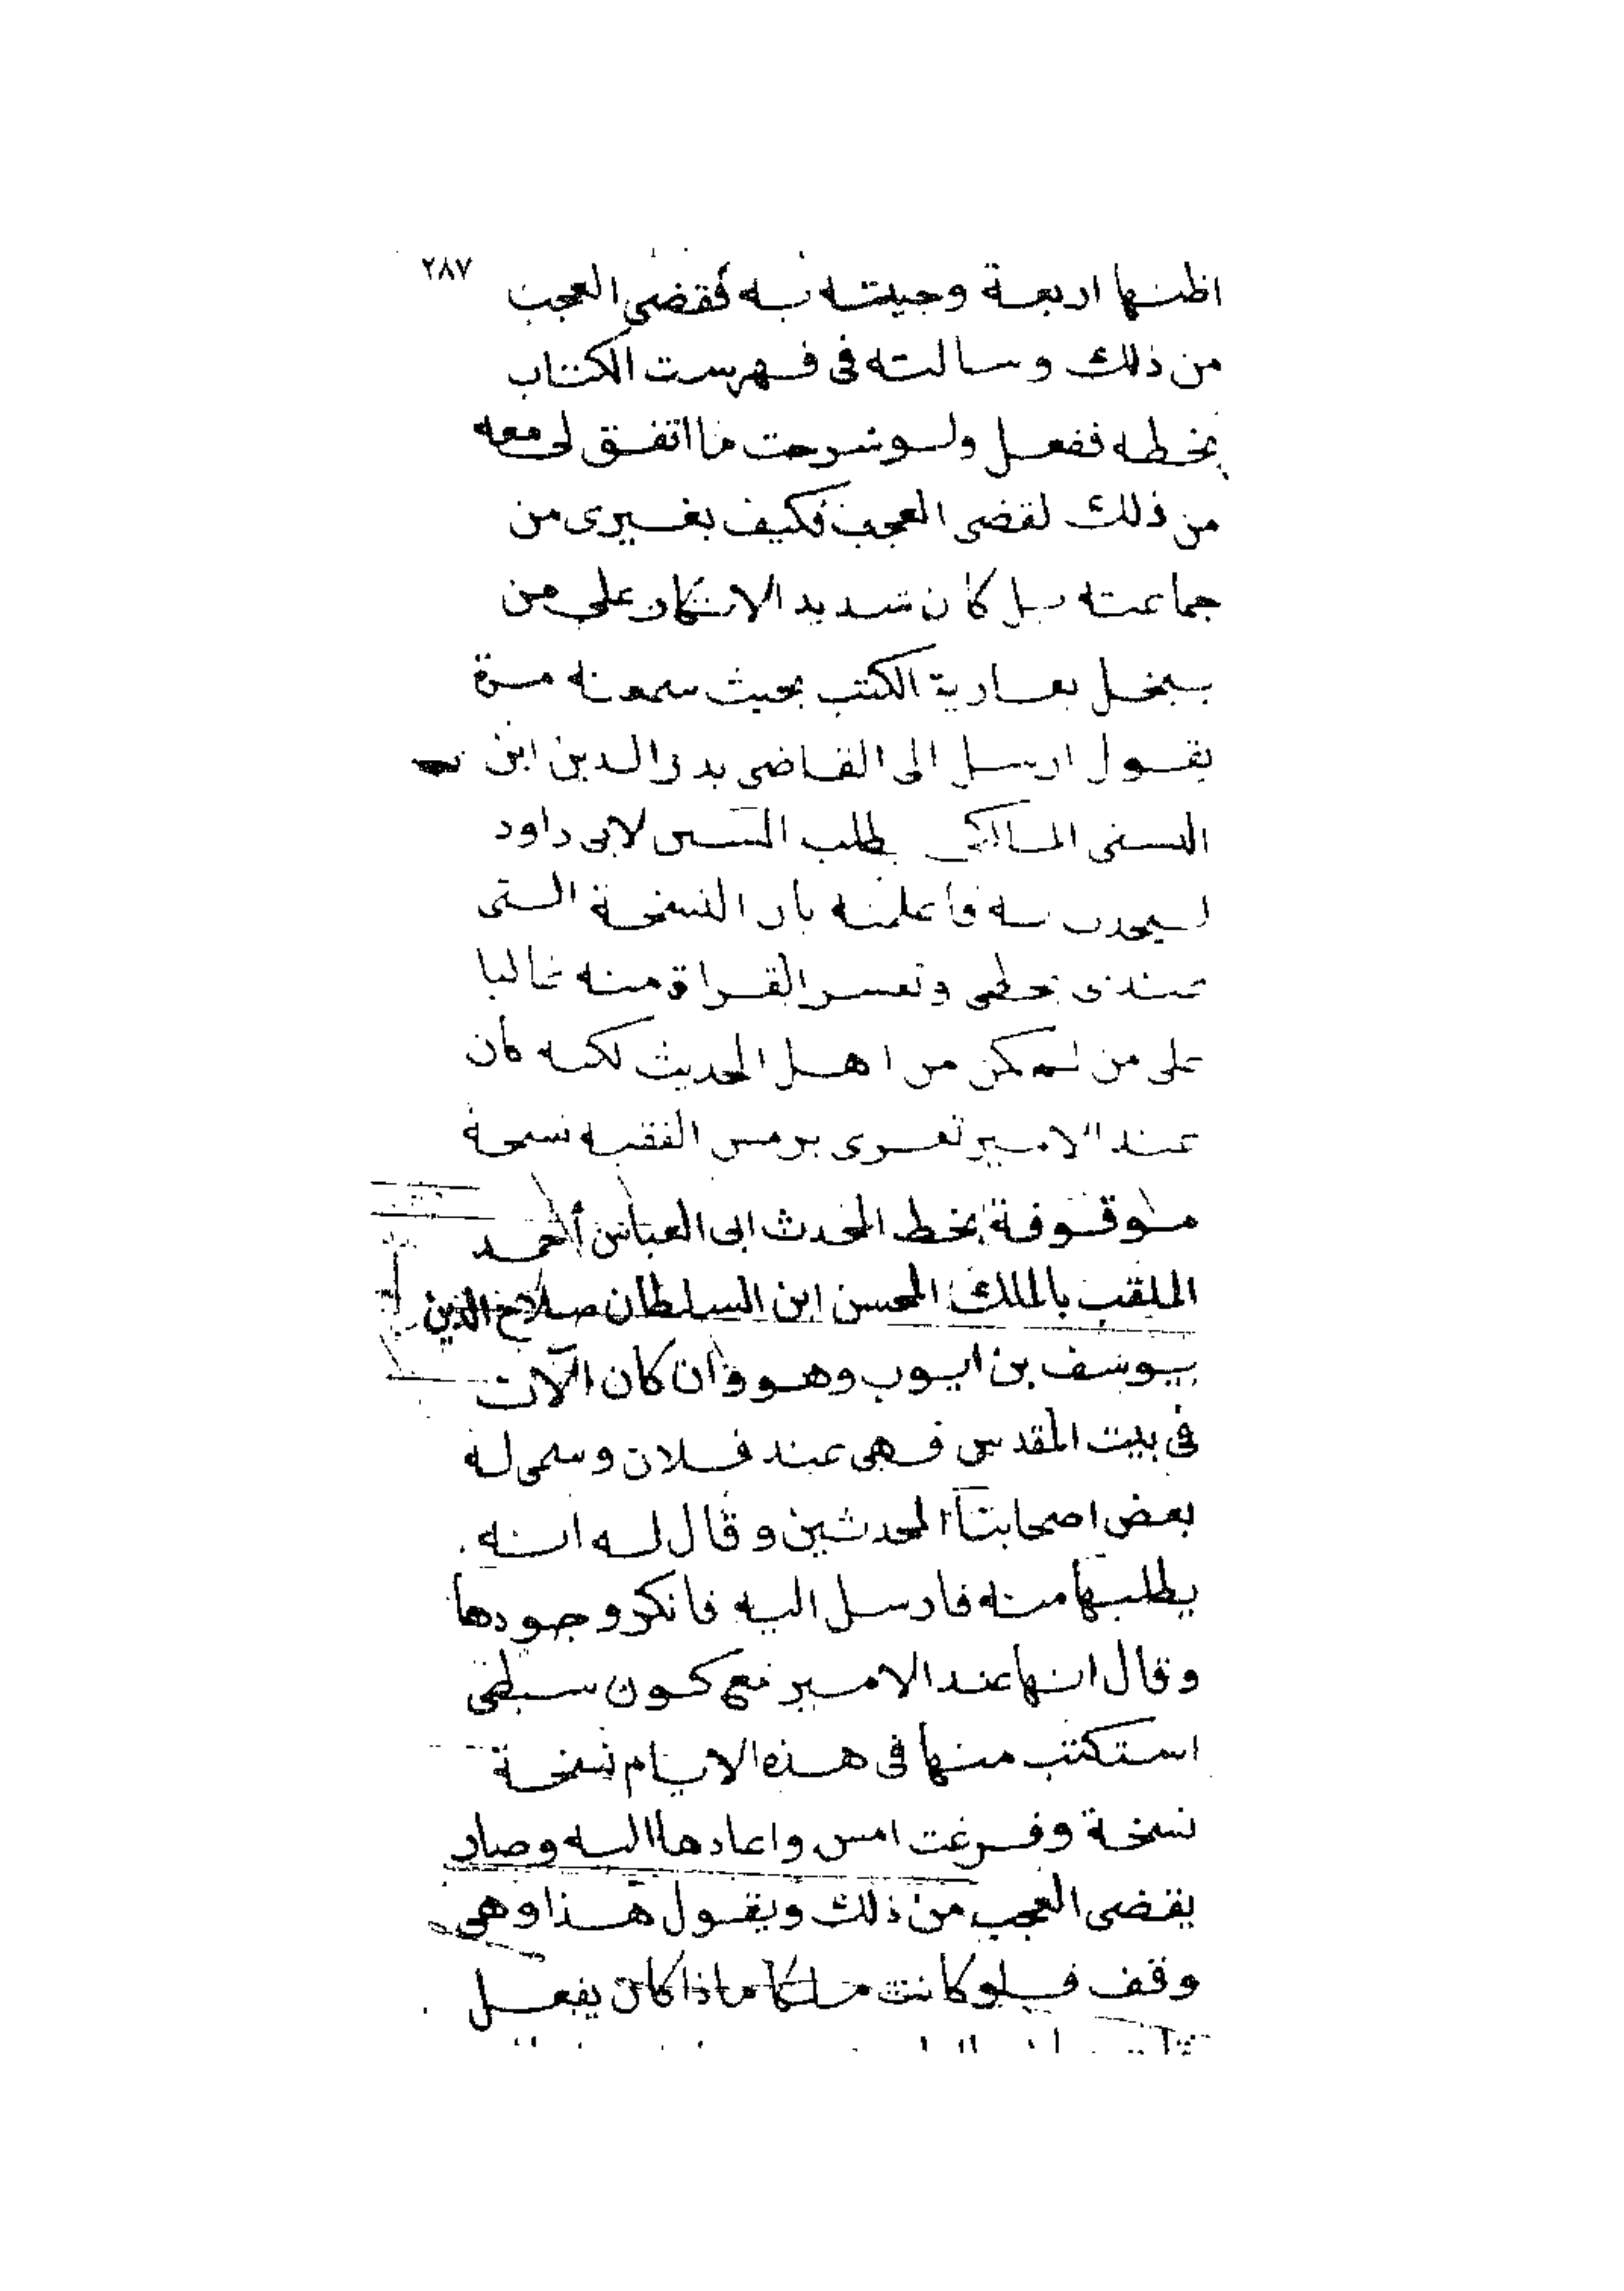 ٢٨٧
اظنها اربعة وجيته به فقضى العجب
من ذلك وسالته فى فهرست الكتاب
بخطه ففعل ولو شرحت ما اتفق لى معه
من ذلك لقضى العجب فكيف بغيرى من
جماعته بل كان شديد الانكار على من
يبخل بعارية الكتب بحيث سمعته مرة
يقول ارسل الى القاضى بدر الدين ابن
التنسى المالكى يطلب السنن لابى داود
به فاعلمته بان النسخة التى
عندى بخطى وتعسر القراة منه غالبا
على من لم يكن من اهل الحديث لكنه كان
عند الامير تغرى برمس الفقيه نسخة
موقوفة بخط المحدث ابى العباس أحمد
الملقب بالملك المحسن ابن السلطان صلاح الدين
يوسف بن ايوب وهو وان كان الآن
فى بيت المقدس فهى عند فلان وسمى له
بعض اصحابنا المحدثين وقال له انه
يطلبها منه فارسل اليه فانكر وجودها
وقال انها عند الامير مع كون سبطى
استكتب منها فى هذه الايام نسخة
نسخة وفرغت امس واعادها اليه وصار
يقضى العجب من ذلك ويقول هذا وهى
وقف فلو كانت ملكا ماذا كان يفعل